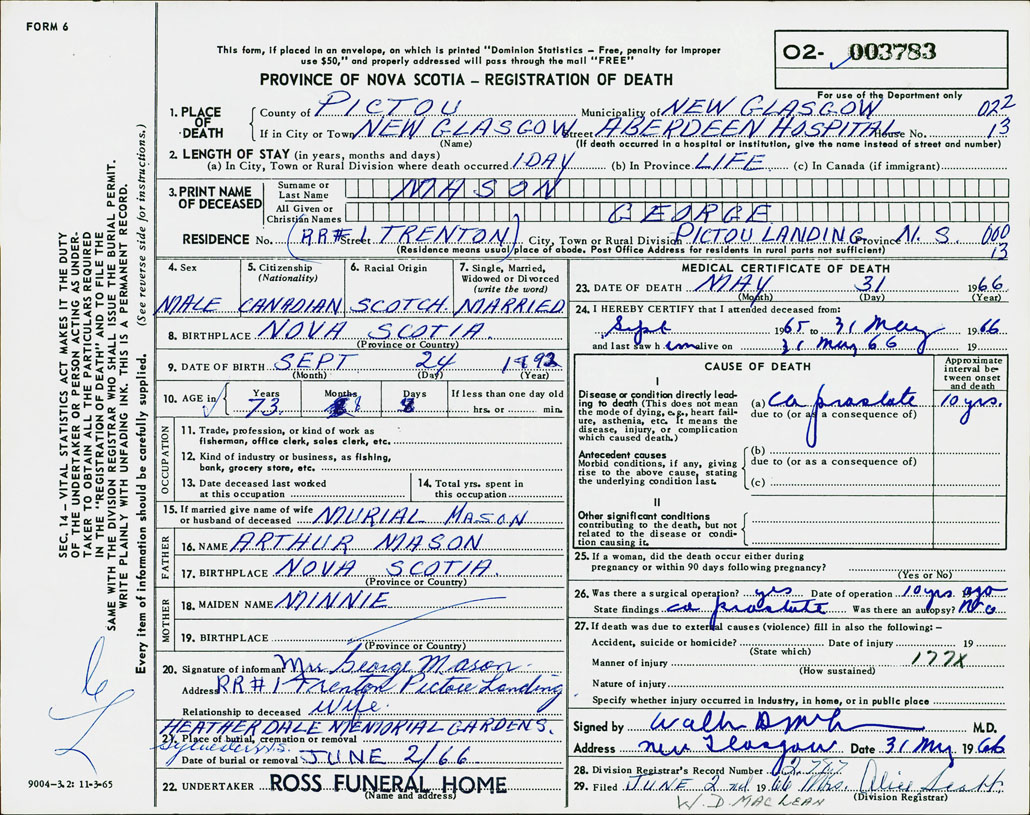 FORM 6
This form, if placed in an envelope, on which is printed "Dominion Statistics – Free, penalty for improper
use $50," and properly addressed will pass through the mail "FREE"
O2- 003783
PROVINCE OF NOVA SCOTIA – REGISTRATION OF DEATH
For use of the Department only
1. PLACE OF DEATH
County of PICTOU Municipality of NEW GLASGOW 022
If in City or Town NEW GLASGOW Street ABERDEEN HOSPITAL House No. 13
(Name) (If death occurred in a hospital or institution, give the name instead of street and number)
2. LENGTH OF STAY (in years, months and days)
(a) In City, Town or Rural Division where death occurred 1 DAY (b) In Province LIFE (c) In Canada (if immigrant)
3. PRINT NAME OF DECEASED
Surname or Last Name MASON
All Given or Christian Names GEORGE
RESIDENCE No. (RR#1 Street TRENTON) City, Town or Rural Division PICTOU LANDING Province N.S. 000
(Residence means usual place of abode. Post Office Address for residents in rural parts not sufficient) 13
4. Sex
MALE
5. Citizenship
(Nationality)
CANADIAN
6. Racial Origin
SCOTCH
7. Single, Married,
Widowed or Divorced
(write the word)
MARRIED
8. BIRTHPLACE NOVA SCOTIA.
(Province or Country)
9. DATE OF BIRTH SEPT 24 1892
(Month) (Day) (Year)
10. AGE in Years Months Days If less than one day old
73. 8 8 hrs. or min.
OCCUPATION
11. Trade, profession, or kind of work as
fisherman, office clerk, sales clerk, etc.
12. Kind of industry or business, as fishing,
bank, grocery store, etc.
13. Date deceased last worked
at this occupation
14. Total yrs. spent in
this occupation
15. If married give name of wife
or husband of deceased MURIAL MASON
FATHER
16. NAME ARTHUR MASON
17. BIRTHPLACE NOVA SCOTIA.
(Province or Country)
MOTHER
18. MAIDEN NAME MINNIE
19. BIRTHPLACE
(Province or Country)
20. Signature of informant Mrs George Mason.
Address RR#1 Trenton Pictou Landing
Relationship to deceased Wife.
HEATHERDALE MEMORIAL GARDENS.
21. Place of burial, cremation or removal
Date of burial or removal JUNE 2/66
22. UNDERTAKER ROSS FUNERAL HOME
(Name and address)
MEDICAL CERTIFICATE OF DEATH
23. DATE OF DEATH MAY 31 1966
(Month) (Day) (Year)
24. I HEREBY CERTIFY that I attended deceased from:
Sept 1965 to 31 May 1966
and last saw him alive on 31 May 66 19
CAUSE OF DEATH
Approximate
interval be-
tween onset
and death
I
Disease or condition directly lead-
ing to death (This does not mean
the mode of dying, e.g., heart fail-
ure, asthenia, etc. It means the
disease, injury, or complication
which caused death.)
(a) Ca prostate 10 yrs.
due to (or as a consequence of)
Antecedent causes
Morbid conditions, if any, giving
rise to the above cause, stating
the underlying condition last.
(b)
due to (or as a consequence of)
(c)
II
Other significant conditions
contributing to the death, but not
related to the disease or condi-
tion causing it.
25. If a woman, did the death occur either during
pregnancy or within 90 days following pregnancy?
(Yes or No)
26. Was there a surgical operation? yes Date of operation 10 yrs. ago
State findings ca prostate Was there an autopsy? No
27. If death was due to external causes (violence) fill in also the following: –
Accident, suicide or homicide? Date of injury 19
(State which)
Manner of injury 177X
(How sustained)
Nature of injury
Specify whether injury occurred in Industry, in home, or in public place
Signed by M.D.
Address New Glasgow Date 31 May 1966
28. Division Registrar's Record Number
29. Filed JUNE 2 nd 1966 Mrs. Alice Scott
W. D. MACLEAN (Division Registrar)
SEC. 14 – VITAL STATISTICS ACT MAKES IT THE DUTY
OF THE UNDERTAKER OR PERSON ACTING AS UNDER-
TAKER TO OBTAIN ALL THE PARTICULARS REQUIRED
IN THE "REGISTRATION OF DEATH" AND TO FILE THE
SAME WITH THE DIVISION REGISTRAR WHO SHALL ISSUE THE BURIAL PERMIT.
WRITE PLAINLY WITH UNFADING INK. THIS IS A PERMANENT RECORD.
Every item of information should be carefully supplied. (See reverse side for instructions.)
9004-3.2: 11-3-65